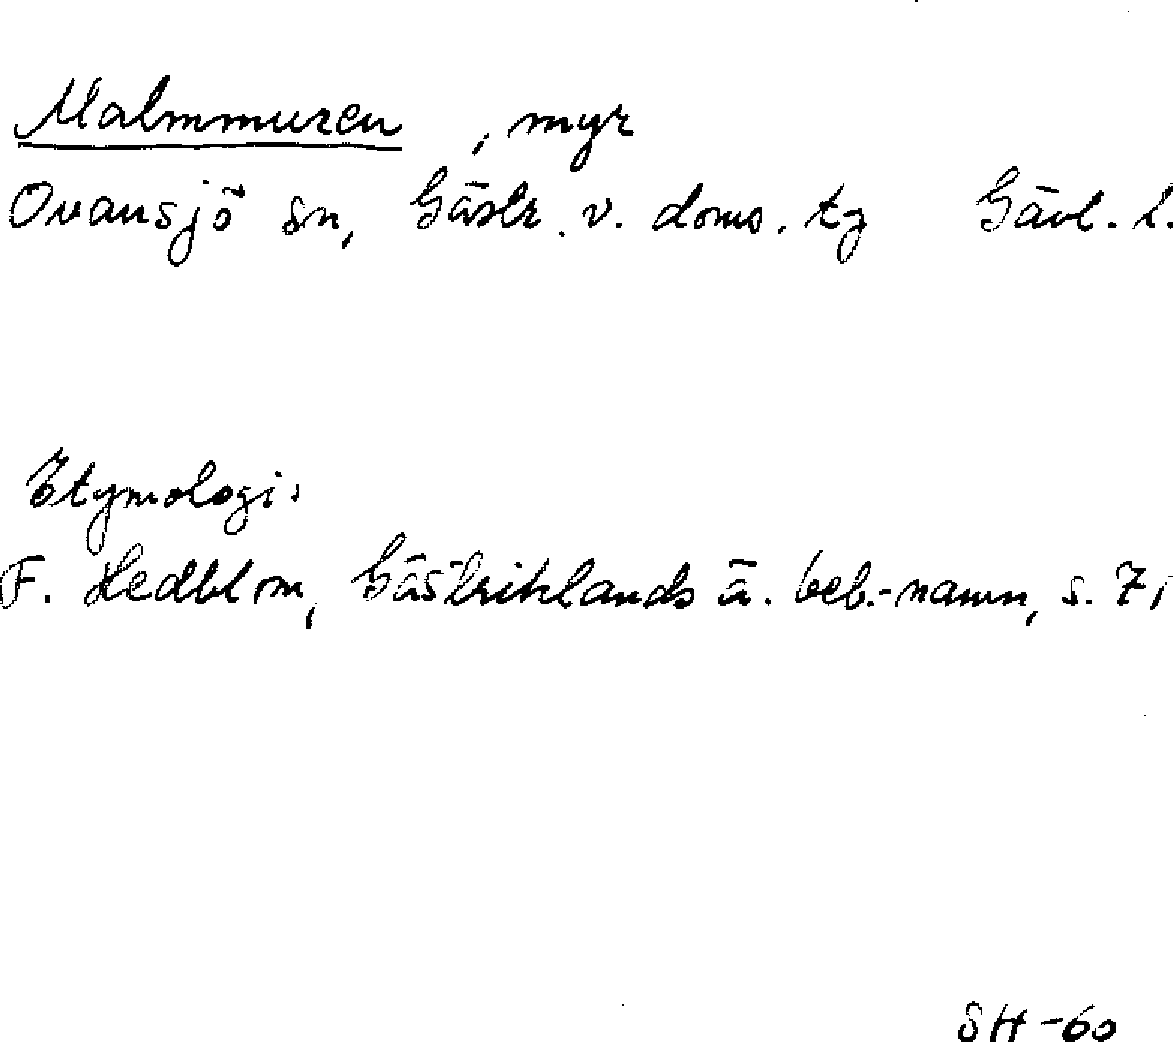 Malmmuren , myr
Ovansjö sn, Gästr. v. doms. tg Gävl. l.
Etymologi:
F. Hedblom, Gästriklands ä. beb.-namn, s. 71
SH-60